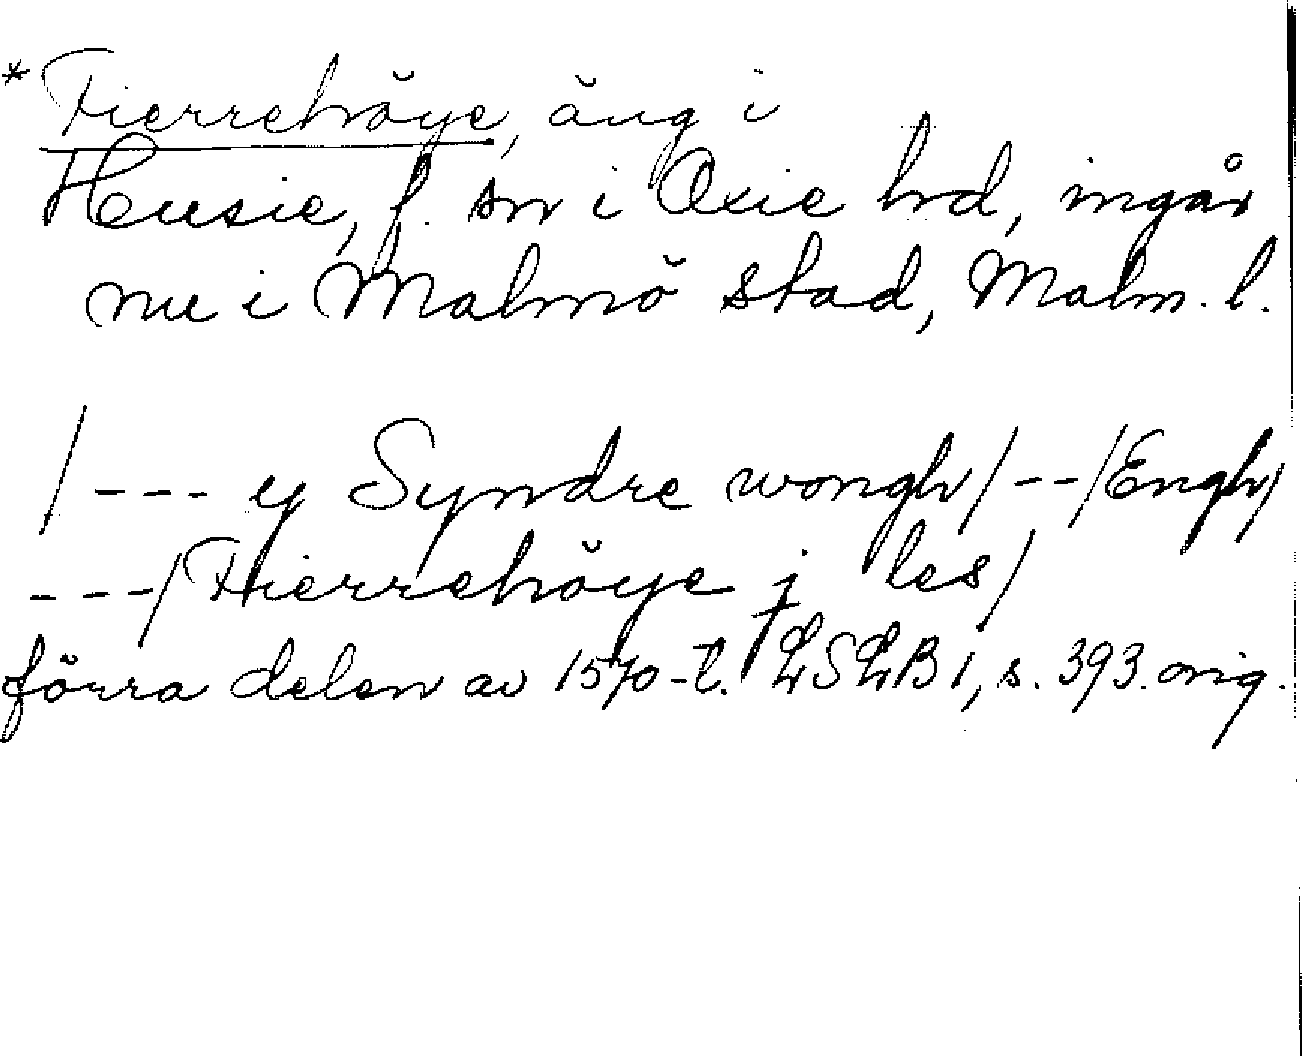 * Fierrehöye, äng i
Husie, f. sn i Oxie hd, ingår
nu i Malmö stad, Malm. l.
/--- y Syndre wongh/--/Engh/
---/Fierrehöye j les/
förra delen av 1570-t. LSLB 1, s. 393. orig.